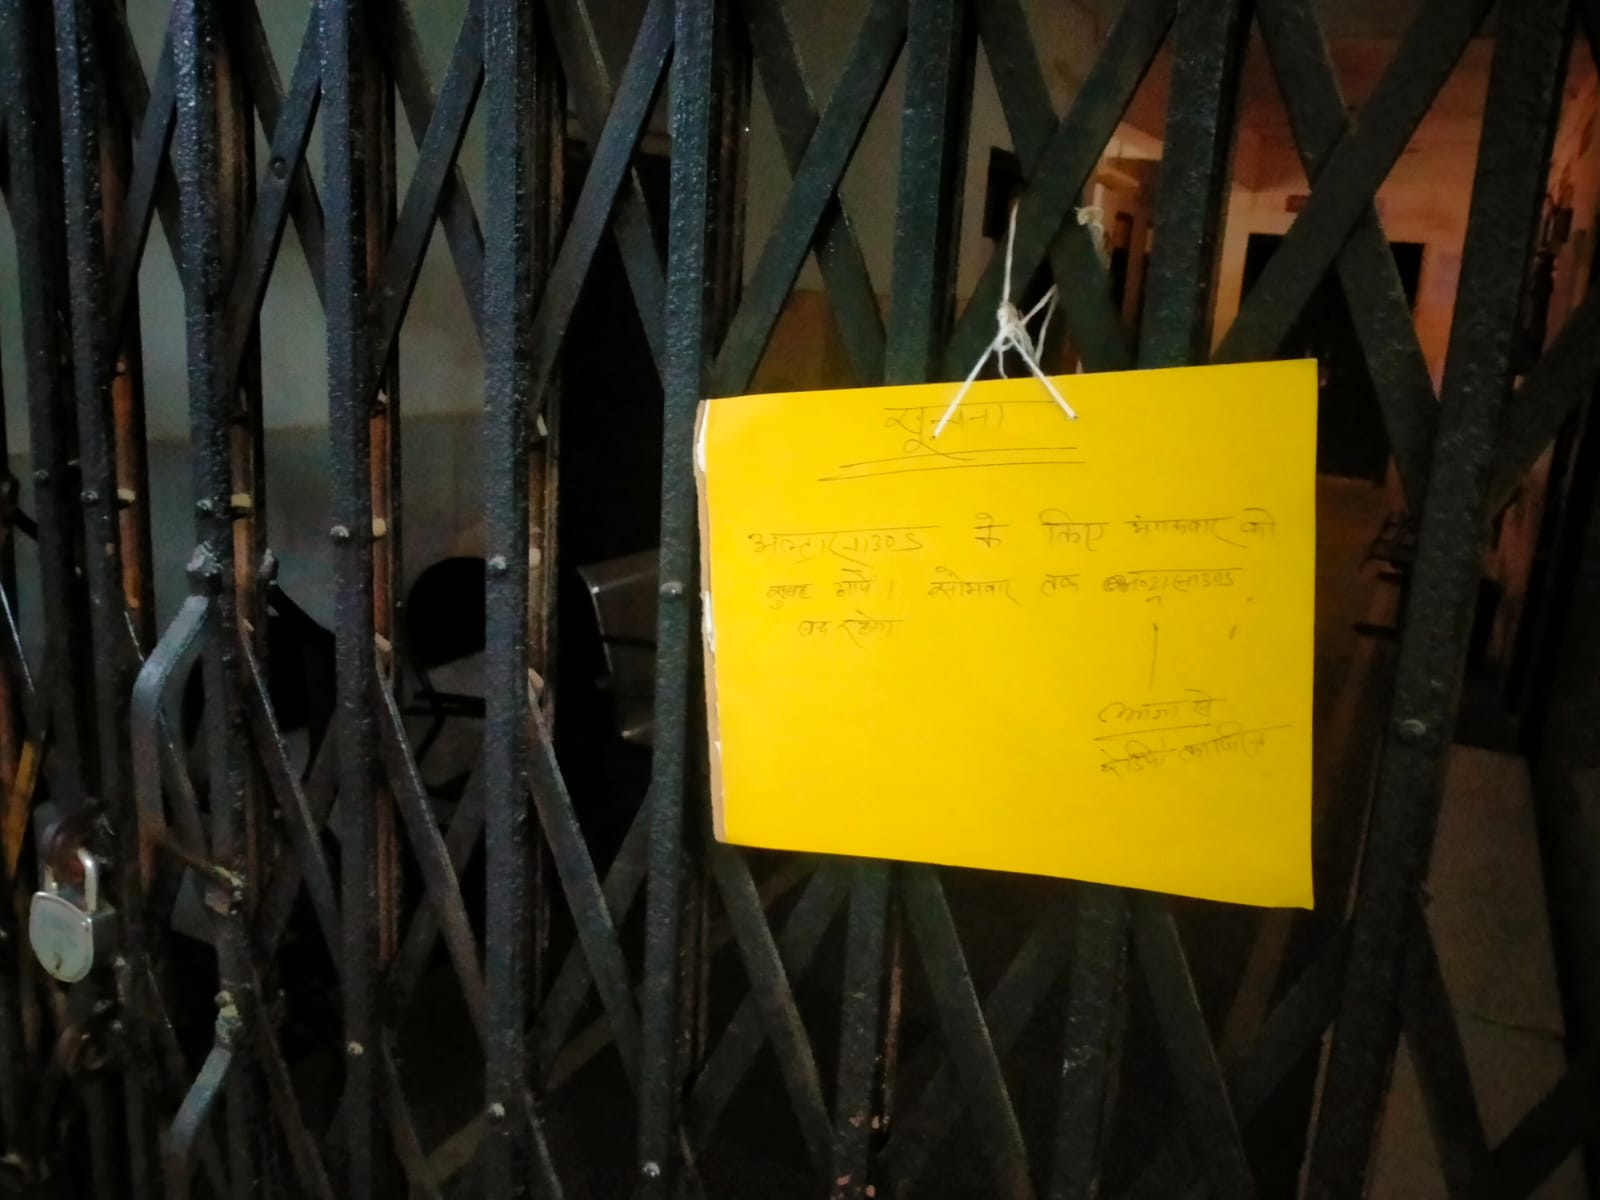 सूचना
अल्ट्रासाउण्ड के लिए मंगलवार को
सुबह आयें। सोमवार तक अल्ट्रासाउण्ड
बंद रहेगा
आज्ञा से